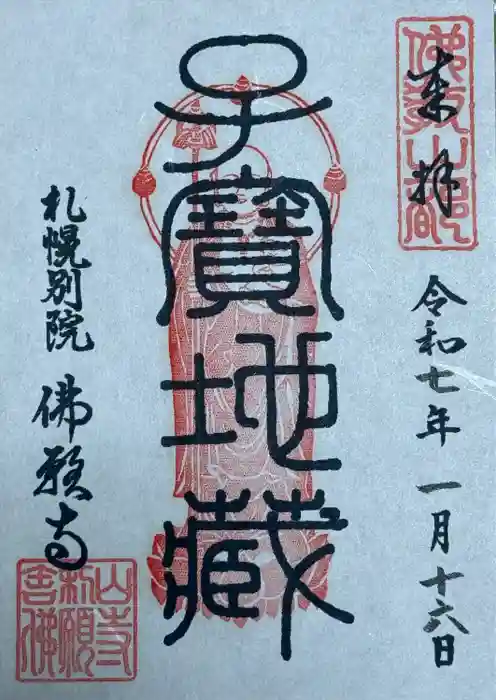 奉拝
令和七年一月十六日
子寶地藏
札幌別院
佛願寺